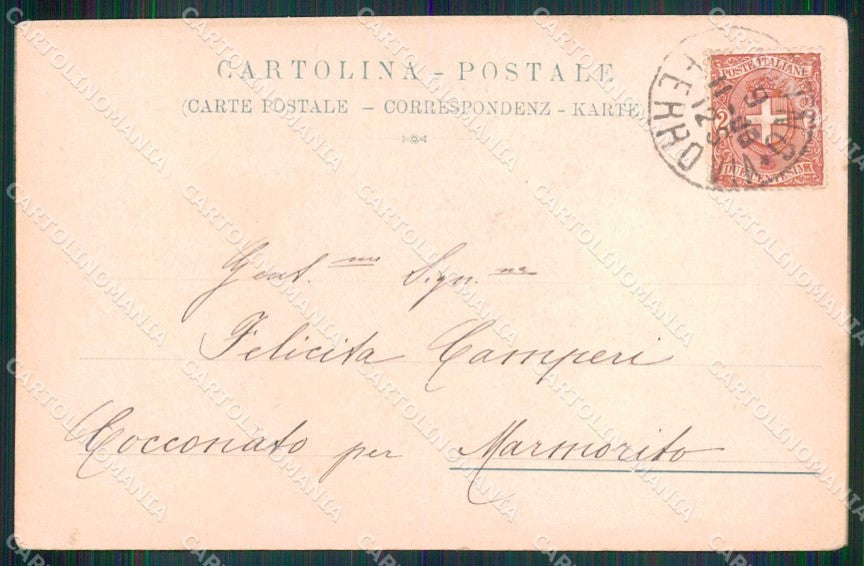 CARTOLINA - POSTALE
(CARTE POSTALE - CORRESPONDENZ - KARTE)
POSTE ITALIANE
2
DUE CENTESIMI
FERROV
Gent.ma Sign.na
Felicita Camperi
Cocconato per Marmorito
CARTOLINOMANIA